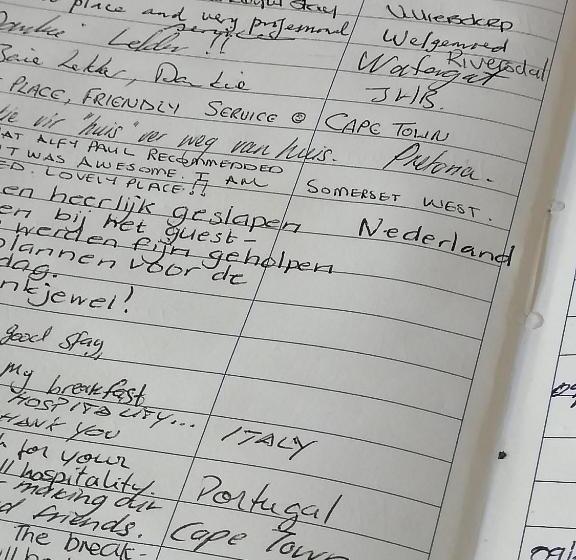 place and very professional
Service
Lekker !!
Welgemoed
Riversdal
Baie Lekker, Dankie
JHB.
PLACE, FRIENDLY SERVICE ☺ CAPE TOWN
vir "huis" ver weg van huis. Pretoria.
AT ALFY PAUL RECOMMENDED
IT WAS AWESOME. I AM
ED. LOVELY PLACE!! SOMERSET WEST.
en heerlijk geslapen Nederland
en bij het guest-
werden fijn geholpen
plannen voor de
dag.
nkjewel!
good stay
My breakfast
HOSPITALITY...
HANK YOU ITALY
for your
ll hospitality. Portugal
making our
d friends. Cape Town
The break-